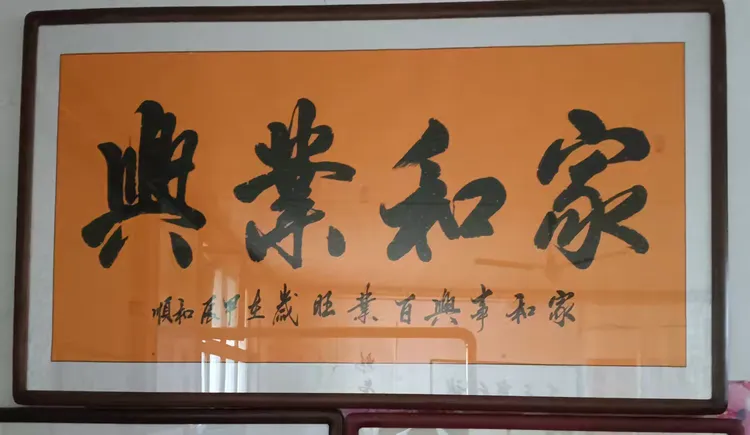 家和業興
家和事興百業旺歲在甲辰和順